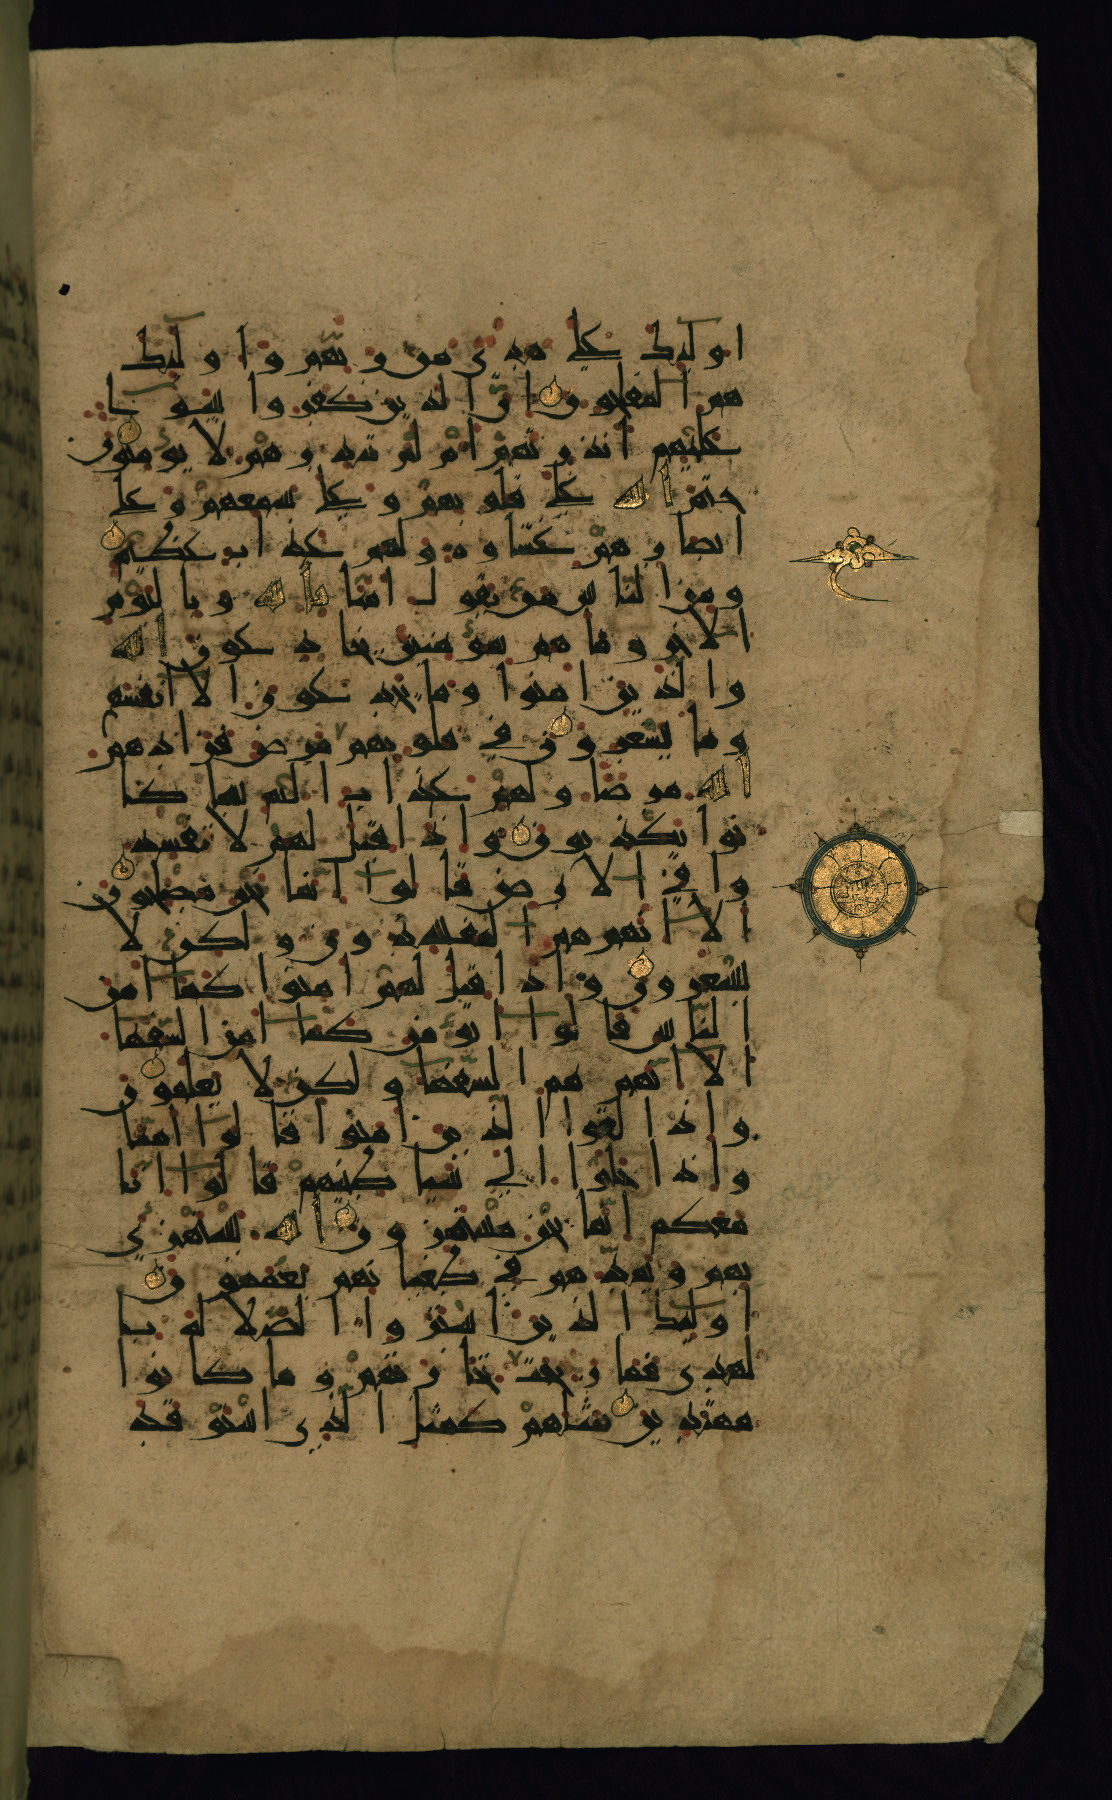 اولئك على هدى من ربهم واولئك
هم المفلحون ان الذين كفروا سوا
عليهم اانذرتهم ام لم تنذرهم لا يومنون
ختم الله على قلوبهم وعلى سمعهم وعلى
ابصارهم غشاوة ولهم عذاب عظيم
ومن الناس من يقول امنا بالله وباليوم
الاخر وما هم بمومنين يخادعون الله
والذين امنوا وما يخدعون الا انفسهم
وما يشعرون في قلوبهم مرض فزادهم
الله مرضا ولهم عذاب اليم بما كا
نوا يكذبون واذا قيل لهم لا تفسدوا
في الارض قالوا انما نحن مصلحون
الا انهم هم المفسدون ولكن لا
يشعرون واذا قيل لهم امنوا كما امن
الناس قالوا انومن كما امن السفها
الا انهم هم السفها ولكن لا يعلمون
واذا لقوا الذين امنوا قالوا امنا
واذا خلوا الى شياطينهم قالوا انا
معكم انما نحن مستهزون الله يستهزي
بهم ويمدهم في طغيانهم يعمهون
اولئك الذين اشتروا الضلالة با
لهدى فما ربحت تجارتهم وما كانوا
مهتدين مثلهم كمثل الذي استوقد